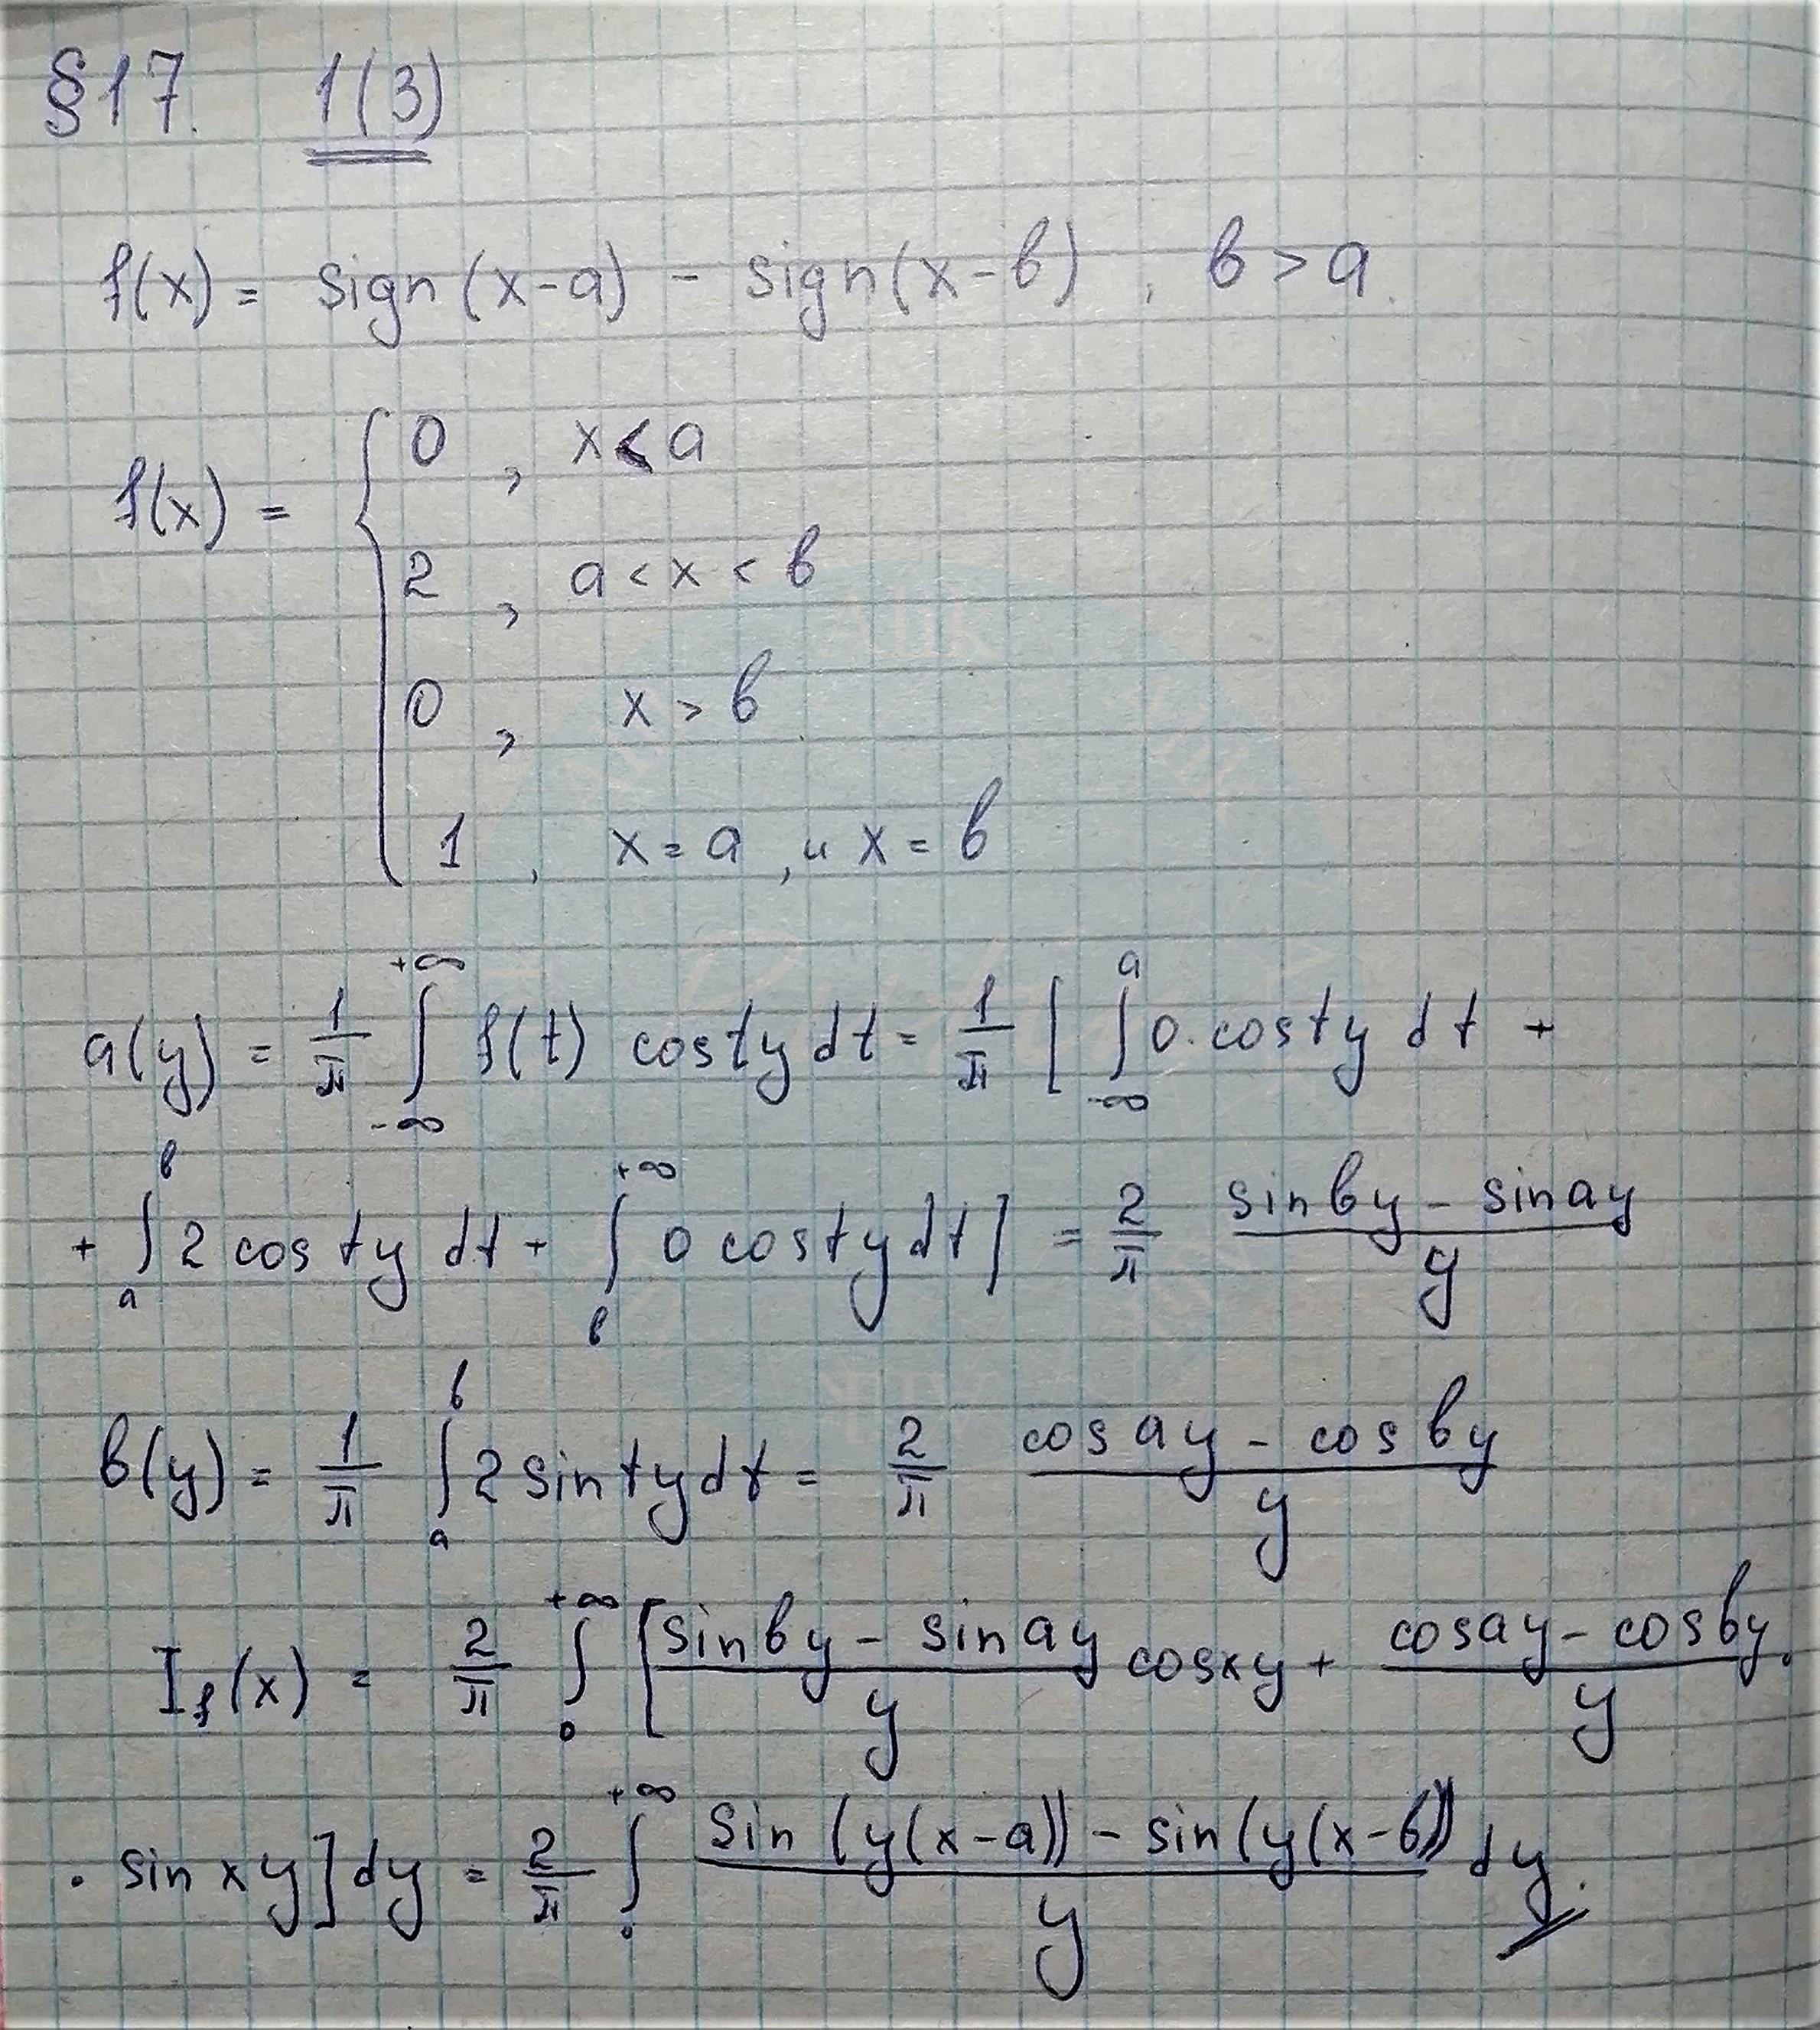 §17. 1(3)
f(x) = sign(x-a) - sign(x-в), в > a.
f(x) = { 0, x < a
2, a < x < в
0, x > в
1, x = a, и x = в
a(y) = 1/π ∫_{-∞}^{+∞} f(t) cos ty dt = 1/π [ ∫_{-∞}^{a} 0·cos ty dt +
+ ∫_{a}^{в} 2 cos ty dt + ∫_{в}^{+∞} 0 cos ty dt ] = 2/π (sin вy - sin ay)/y
в(y) = 1/π ∫_{a}^{в} 2 sin ty dt = 2/π (cos ay - cos вy)/y
I_f(x) = 2/π ∫_{0}^{+∞} [ (sin вy - sin ay)/y cos xy + (cos ay - cos вy)/y ·
· sin xy ] dy = 2/π ∫_{0}^{+∞} (sin (y(x-a)) - sin (y(x-в)))/y dy.